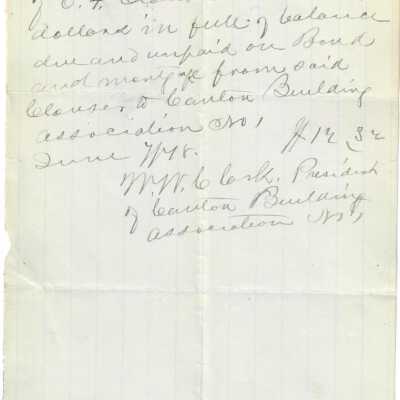 of C. F. Clouser
dollars in full of balance
due and unpaid on Bond
and mortgage from said
Clouser to Canton Building
association No 1
June 7/78.
W. W. Clark. President
of Canton Building
association No 1